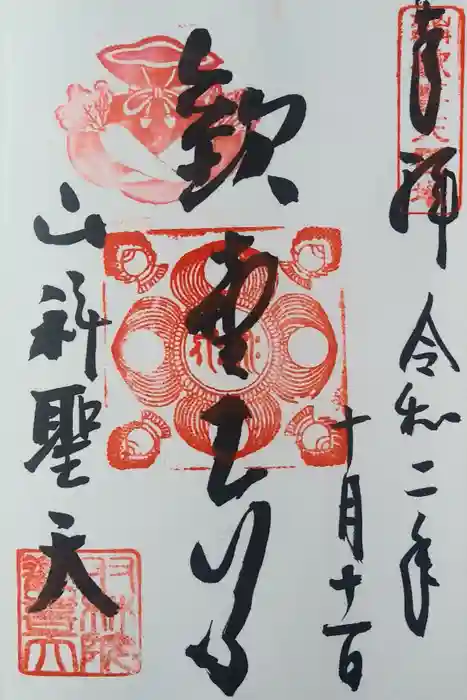 奉拝
令和二年
十月十一日
歓喜天尊
山科聖天